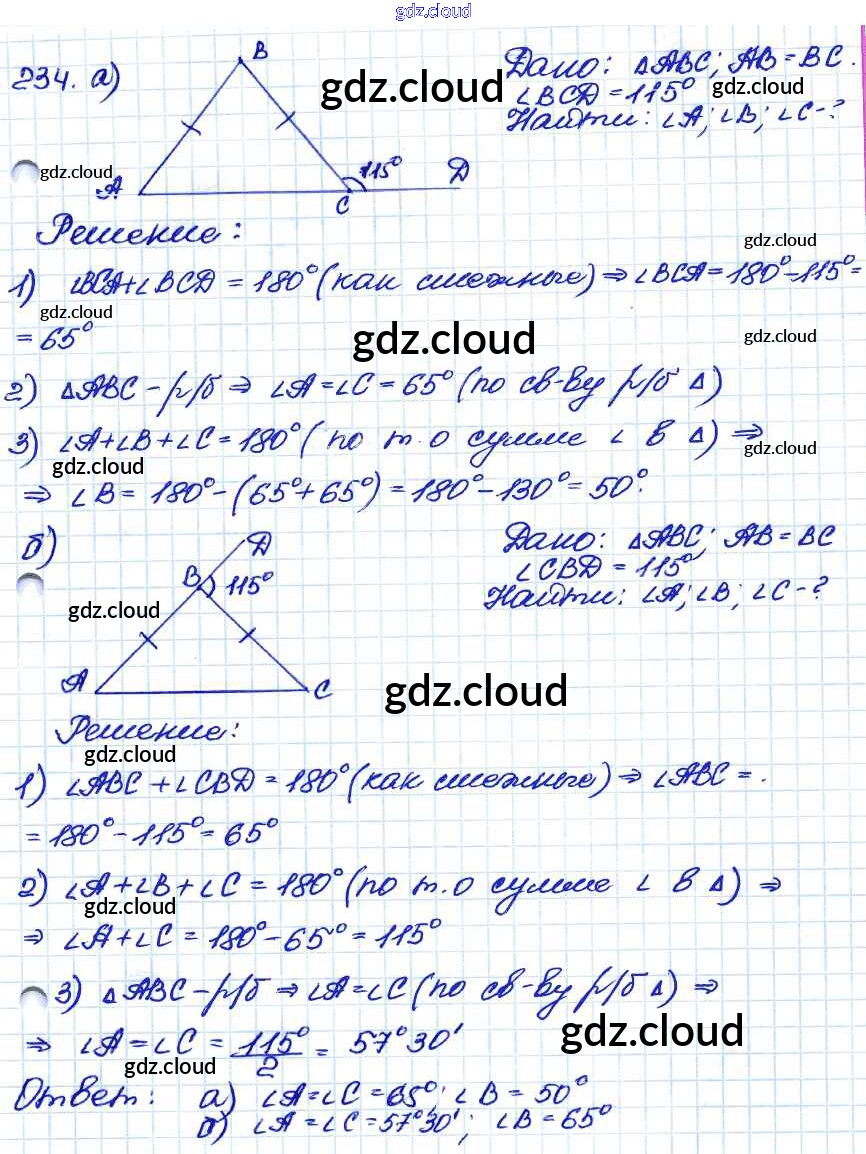 gdz.cloud
234. а)
B
Дано: ΔABC; AB=BC.
gdz.cloud
∠BCD=115°
Найти: ∠A; ∠B; ∠C-?
gdz.cloud
115°
D
A
C
Решение:
gdz.cloud
1) ∠BCA+∠BCD=180°(как смежные)⇒∠BCA=180°-115°=
gdz.cloud
=65°
gdz.cloud
gdz.cloud
2) ΔABC-р/б ⇒ ∠A=∠C=65°(по св-ву р/б Δ)
3) ∠A+∠B+∠C=180°(по т.о сумме ∠ в Δ) ⇒
gdz.cloud
gdz.cloud
⇒ ∠B= 180°-(65°+65°)=180°-130°=50°.
б)
D
Дано: ΔABC; AB=BC
B
115°
∠CBD=115°
Найти: ∠A; ∠B; ∠C-?
gdz.cloud
A
C
gdz.cloud
Решение:
gdz.cloud
1) ∠ABC+∠CBD=180°(как смежные)⇒∠ABC=.
=180°-115°=65°
2) ∠A+∠B+∠C=180°(по т.о сумме ∠ в Δ) ⇒
gdz.cloud
⇒ ∠A+∠C=180°-65°=115°
3) ΔABC-р/б ⇒∠A=∠C(по св-ву р/б Δ) ⇒
gdz.cloud
⇒ ∠A=∠C=115°/2=57°30'
gdz.cloud
Ответ: а) ∠A=∠C=65°; ∠B=50°
б) ∠A=∠C=57°30'; ∠B=65°